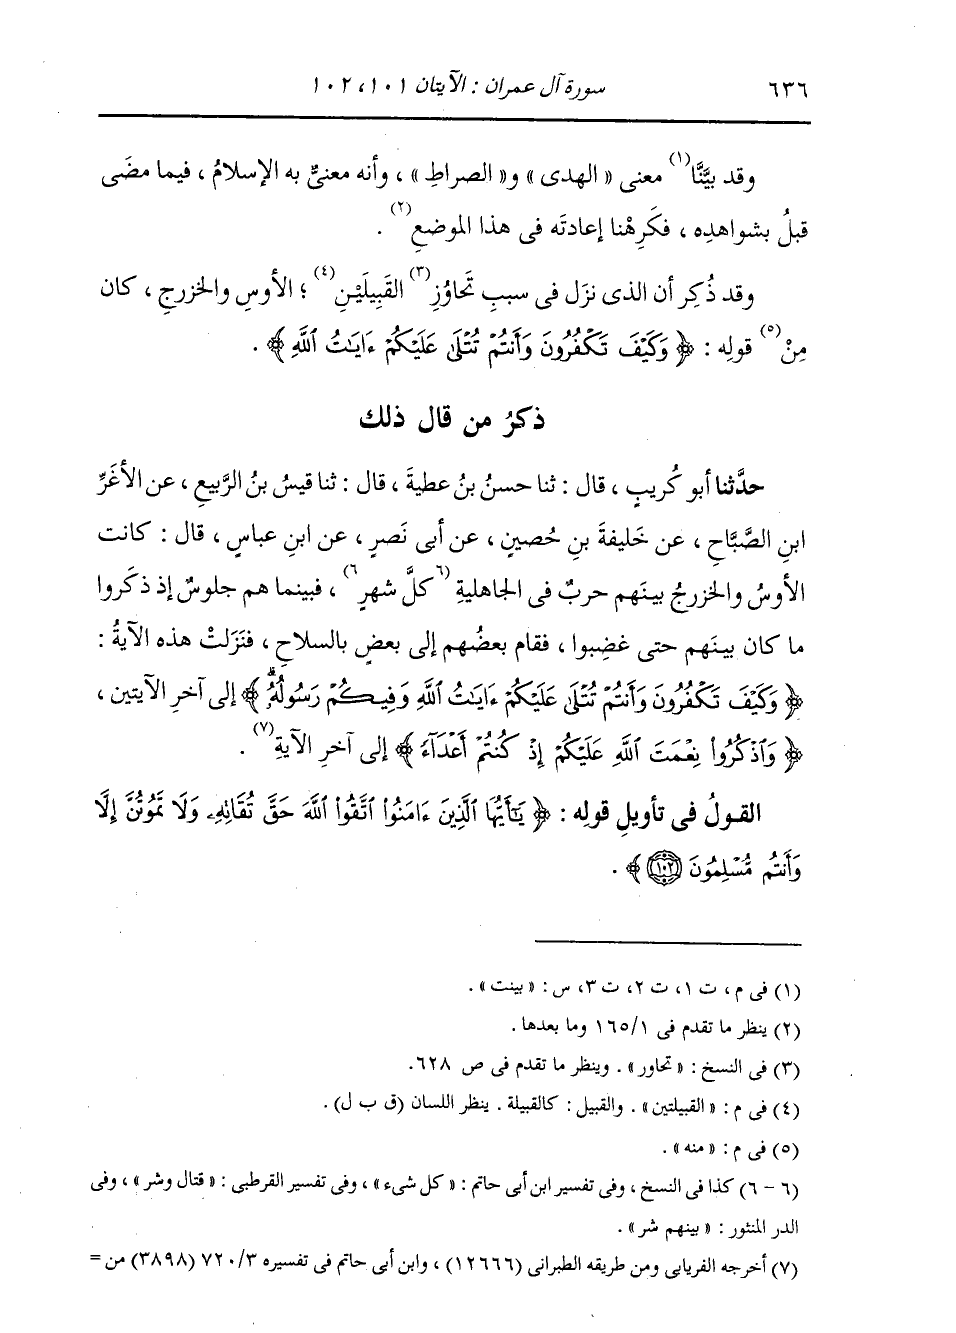 ٦٣٦ سورة آل عمران : الآيتان ١٠١، ١٠٢
وقد بيَّنَّا(١) معنى « الهدى » و« الصراطِ » ، وأنه معنىٌّ به الإسلامُ ، فيما مضَى
قبلُ بشواهدِه ، فكَرِهْنا إعادتَه فى هذا الموضعِ(٢) .
وقد ذُكِر أن الذى نزَل فى سببِ تَحَاوُزِ(٣) القَبِيلَيْنِ(٤) ؛ الأوسِ والخزرجِ ، كان
مِنْ(٥) قولِه : ﴿ وَكَيْفَ تَكْفُرُونَ وَأَنتُمْ تُتْلَىٰ عَلَيْكُمْ ءَايَـٰتُ ٱللَّهِ ﴾ .
ذكرُ من قال ذلك
حدَّثنا أبو كُريبٍ ، قال : ثنا حسنُ بنُ عطيةَ ، قال : ثنا قيسُ بنُ الرَّبيعِ ، عن الأغَرِّ
ابنِ الصَّبَّاحِ ، عن خَليفةَ بنِ حُصينٍ ، عن أبى نَصرٍ ، عن ابنِ عباسٍ ، قال : كانت
الأوسُ والخزرجُ بينَهم حربٌ فى الجاهليةِ (٦كلَّ شهرٍ٦) ، فبينما هم جلوسٌ إذ ذكَروا
ما كان بينَهم حتى غضِبوا ، فقام بعضُهم إلى بعضٍ بالسلاحِ ، فنَزَلتْ هذه الآيةُ :
﴿ وَكَيْفَ تَكْفُرُونَ وَأَنتُمْ تُتْلَىٰ عَلَيْكُمْ ءَايَـٰتُ ٱللَّهِ وَفِيكُمْ رَسُولُهُۥۗ ﴾ إلى آخرِ الآيتين ،
﴿ وَٱذْكُرُوا۟ نِعْمَتَ ٱللَّهِ عَلَيْكُمْ إِذْ كُنتُمْ أَعْدَآءً ﴾ إلى آخرِ الآيةِ(٧) .
القولُ فى تأويلِ قولِه : ﴿ يَـٰٓأَيُّهَا ٱلَّذِينَ ءَامَنُوا۟ ٱتَّقُوا۟ ٱللَّهَ حَقَّ تُقَاتِهِۦ وَلَا تَمُوتُنَّ إِلَّا
وَأَنتُم مُّسْلِمُونَ ١٠٢ ﴾ .
(١) فى م ، ت ١، ت ٢، ت ٣، س : « بينت » .
(٢) ينظر ما تقدم فى ١٦٥/١ وما بعدها .
(٣) فى النسخ : « تحاور » . وينظر ما تقدم فى ص ٦٢٨.
(٤) فى م : « القبيلتين » . والقبيل : كالقبيلة . ينظر اللسان (ق ب ل) .
(٥) فى م : « منه » .
(٦ - ٦) كذا فى النسخ ، وفى تفسير ابن أبى حاتم : « كل شىء » ، وفى تفسير القرطبى : « قتال وشر » ، وفى
الدر المنثور : « بينهم شر » .
(٧) أخرجه الفريابى ومن طريقه الطبرانى (١٢٦٦٦) ، وابن أبى حاتم فى تفسيره ٧٢٠/٣ (٣٨٩٨) من =